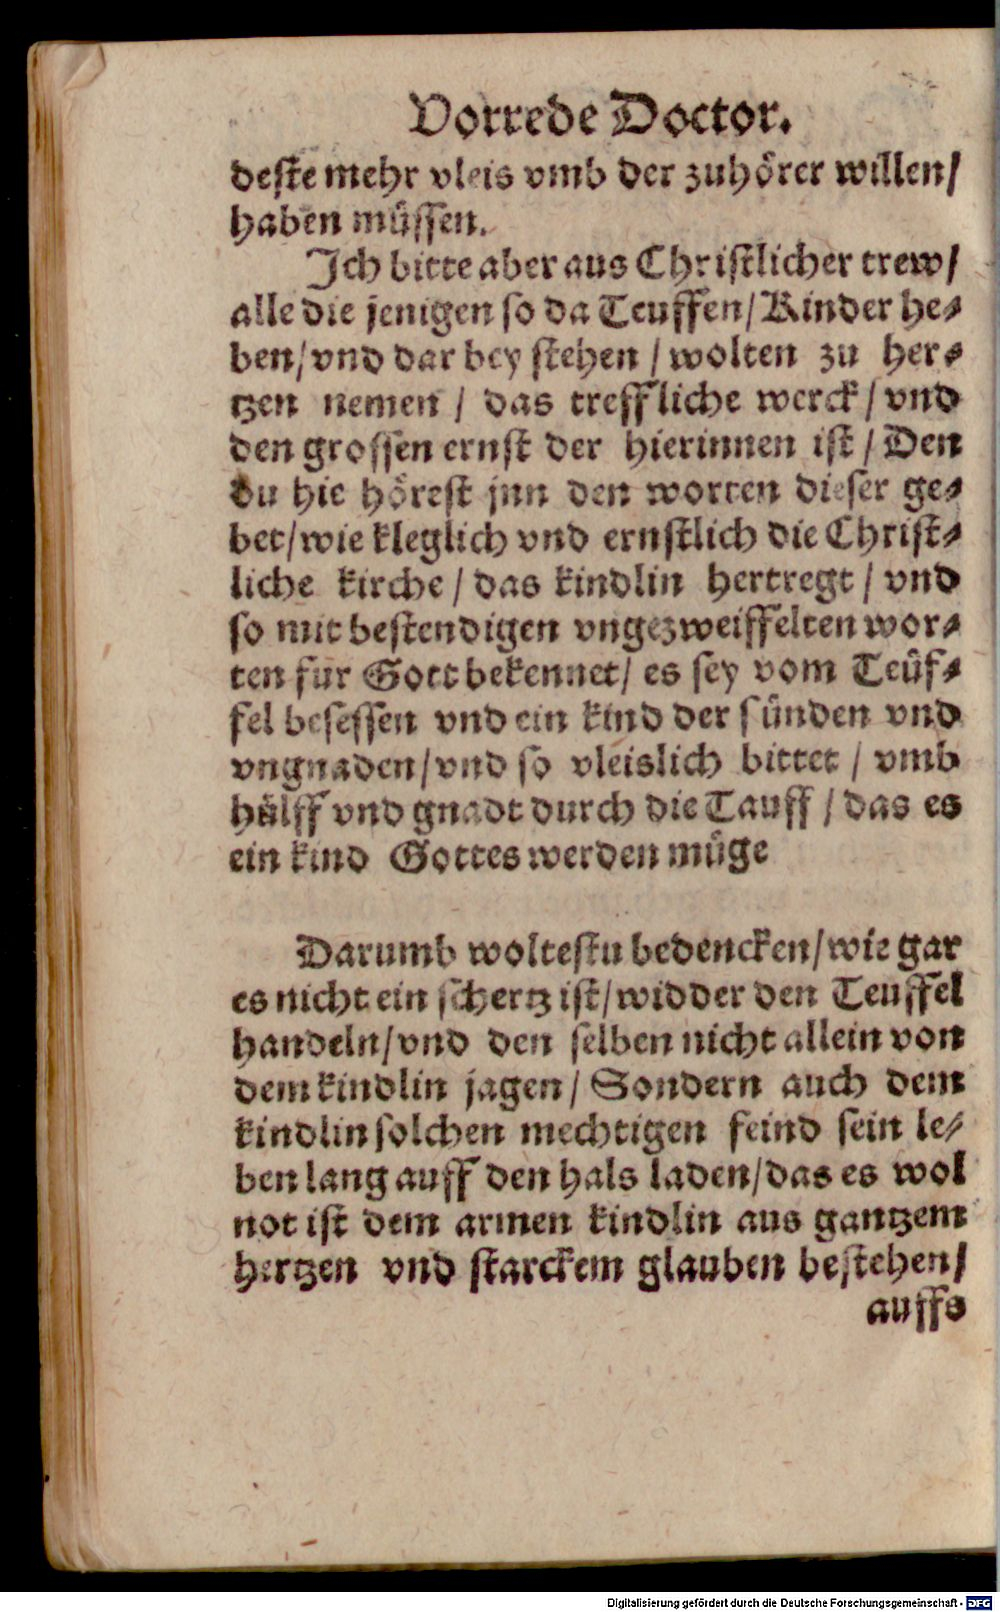 Vorrede Doctor.
deste mehr vleis vmb der zuhörer willen/
haben müssen.
Ich bitte aber aus Christlicher trew/
alle die jenigen so da Teuffen/Kinder he-
ben/vnd dar bey stehen / wolten zu her-
tzen nemen / das treffliche werck / vnd
den grossen ernst der hierinnen ist / Den
du hie hörest jnn den worten dieser ge-
bet/wie kleglich vnd ernstlich die Christ-
liche kirche / das kindlin hertregt / vnd
so mit bestendigen vngezweiffelten wor-
ten für Gott bekennet/ es sey vom Teüf-
fel besessen vnd ein kind der sünden vnd
vngnaden/vnd so vleislich bittet / vmb
hülff vnd gnadt durch die Tauff / das es
ein kind Gottes werden müge
Darumb woltestu bedencken/wie gar
es nicht ein schertz ist/widder den Teuffel
handeln/vnd den selben nicht allein von
dem kindlin jagen/ Sondern auch dem
kindlin solchen mechtigen feind sein le-
ben lang auff den hals laden/das es wol
not ist dem armen kindlin aus gantzem
hertzen vnd starckem glauben bestehen/
auffs
Digitalisierung gefördert durch die Deutsche Forschungsgemeinschaft - DFG